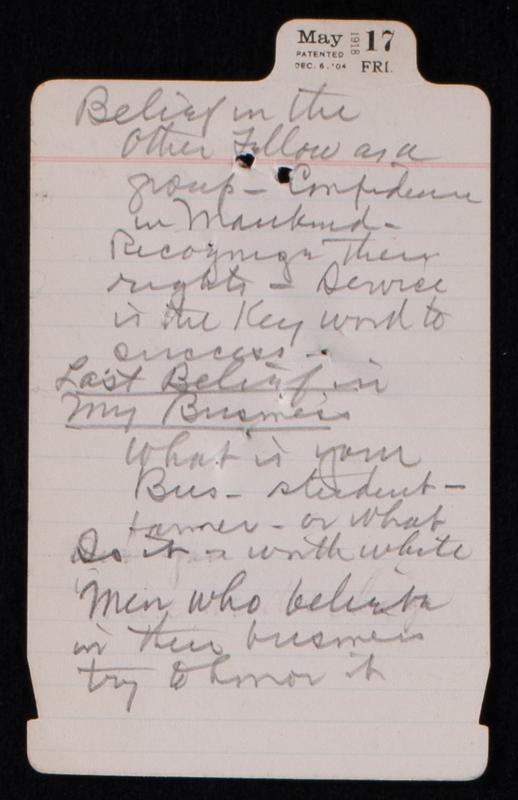 May 1918 17
PATENTED
DEC. 6, '04 FRI.
Belief in the
Other Fellow as a
group - Confidence
in Mankind -
Recognize their
rights - Service
is the Key word to
success -
Last Belief in
My Business
What is your
Bus - student -
farmer - or what
Is it - worth while
Men who believe
in their business
try to honor it